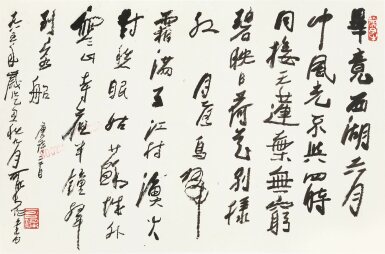 畢竟西湖六月
中風光不與四時
同接天蓮葉無窮
碧映日荷花別樣
紅 月落烏啼
霜滿天江村漁火
對愁眠姑蘇城外
寒山寺夜半鐘聲
到客船